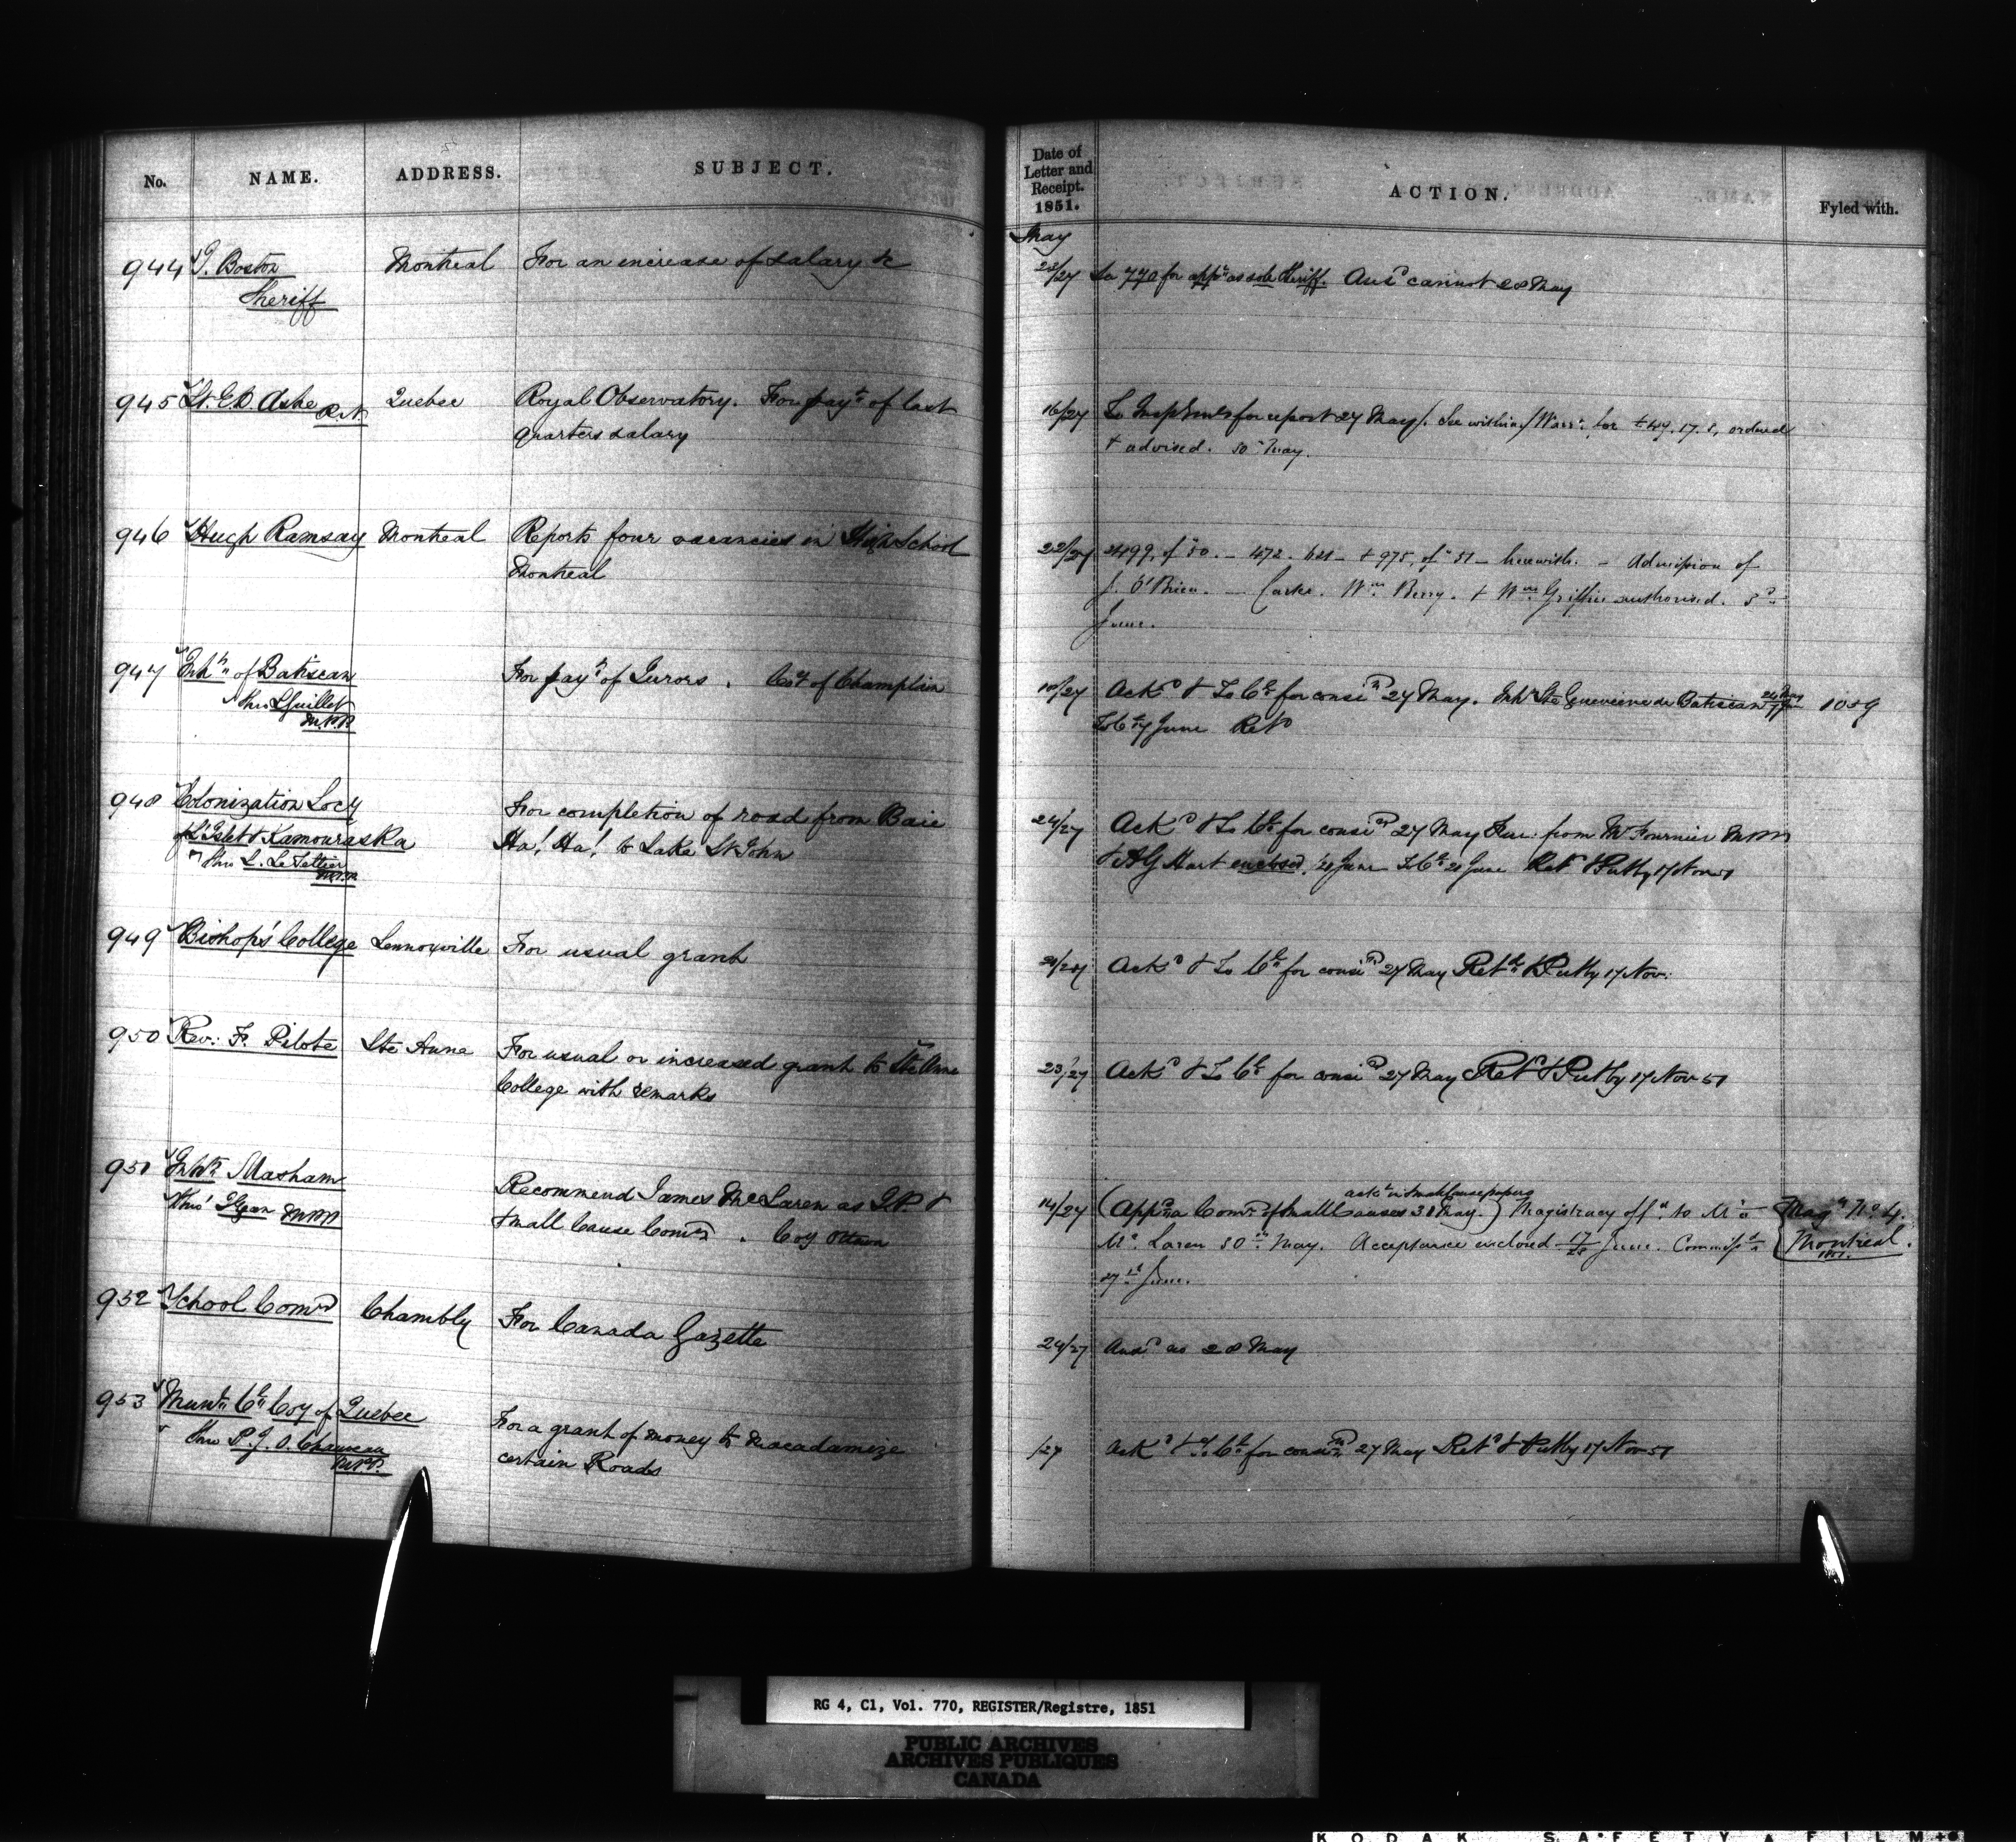 No. NAME. ADDRESS. SUBJECT.
Date of Letter and Receipt. 1851. ACTION. Fyled with.
May
944 J. Boston Montreal For an increase of salary &c
Sheriff
23/27 for appt as sole Sheriff. Ansd cannot 28 May
945 Lt. E.D. Ashe R.N. Quebec Royal Observatory. For payt of last
quarters salary
16/27 To for report 27 May /. See within / Warrt for £49.17.8, ordered
& advised. 30 May.
946 Hugh Ramsay Montreal Reports four vacancies in High School
Montreal
22/27 2499, of '50. - 472. 621 - & 975, of '51 - herewith. - Admission of
J. O'Brien. - Clarke. Wm Berry. & Wm Griffin authorised. 3d
June.
947 Inhts of Batiscan For payt of Jurors. Coy of Champlain
thro L Guillet
M.P.P.
10/27 Ackd & To Cl for consn 27 May. Inhts Ste Genevieve de Batiscan 1059
To Cl 7 June Retd
948 Colonization Socy For completion of road from Baie
of L'Islet & Kamouraska Ha! Ha! to Lake St John
thro L. Letellier
M.P.P.
24/27 Ackd & To Cl for consn 27 May from Mr Fournier MPP
enclosed 20 June To Cl 20 June Retd & Put by 17 Nov 51
949 Bishop's College Lennoxville For usual grant
Ackd & To Cl for consn 27 May Retd & Put by 17 Nov.
950 Rev. F. Pilote Ste Anne For usual or increased grant to Ste Anne
College with remarks
23/27 Ackd & To Cl for consn 27 May Retd & Put by 17 Nov 51
951 Inhts Masham Recommend James McLaren as J.P. &
thro' Egan MPP Small Cause Comr. Coy Ottawa
ackd in Small Cause papers
14/27 (Appd a Comr of Small Causes 31 May.) Magistracy offd to Mr
Mc Laren 30th May. Acceptance enclosed 17/20 June. Commisd
27th June.
Magy No 4.
Montreal.
952 School Comrs Chambly For Canada Gazette
24/27 Ansd as 28 May
953 Munl Cl Coy of Quebec For a grant of money to Macadamize
thro P.J.O. Chauveau certain Roads
M.P.P.
/27 Ackd & to Cl for consn 27 May Retd & Put by 17 Nov 51
RG 4, C1, Vol. 770, REGISTER/Registre, 1851
PUBLIC ARCHIVES
ARCHIVES PUBLIQUES
CANADA
KODAK SAFETY FILM